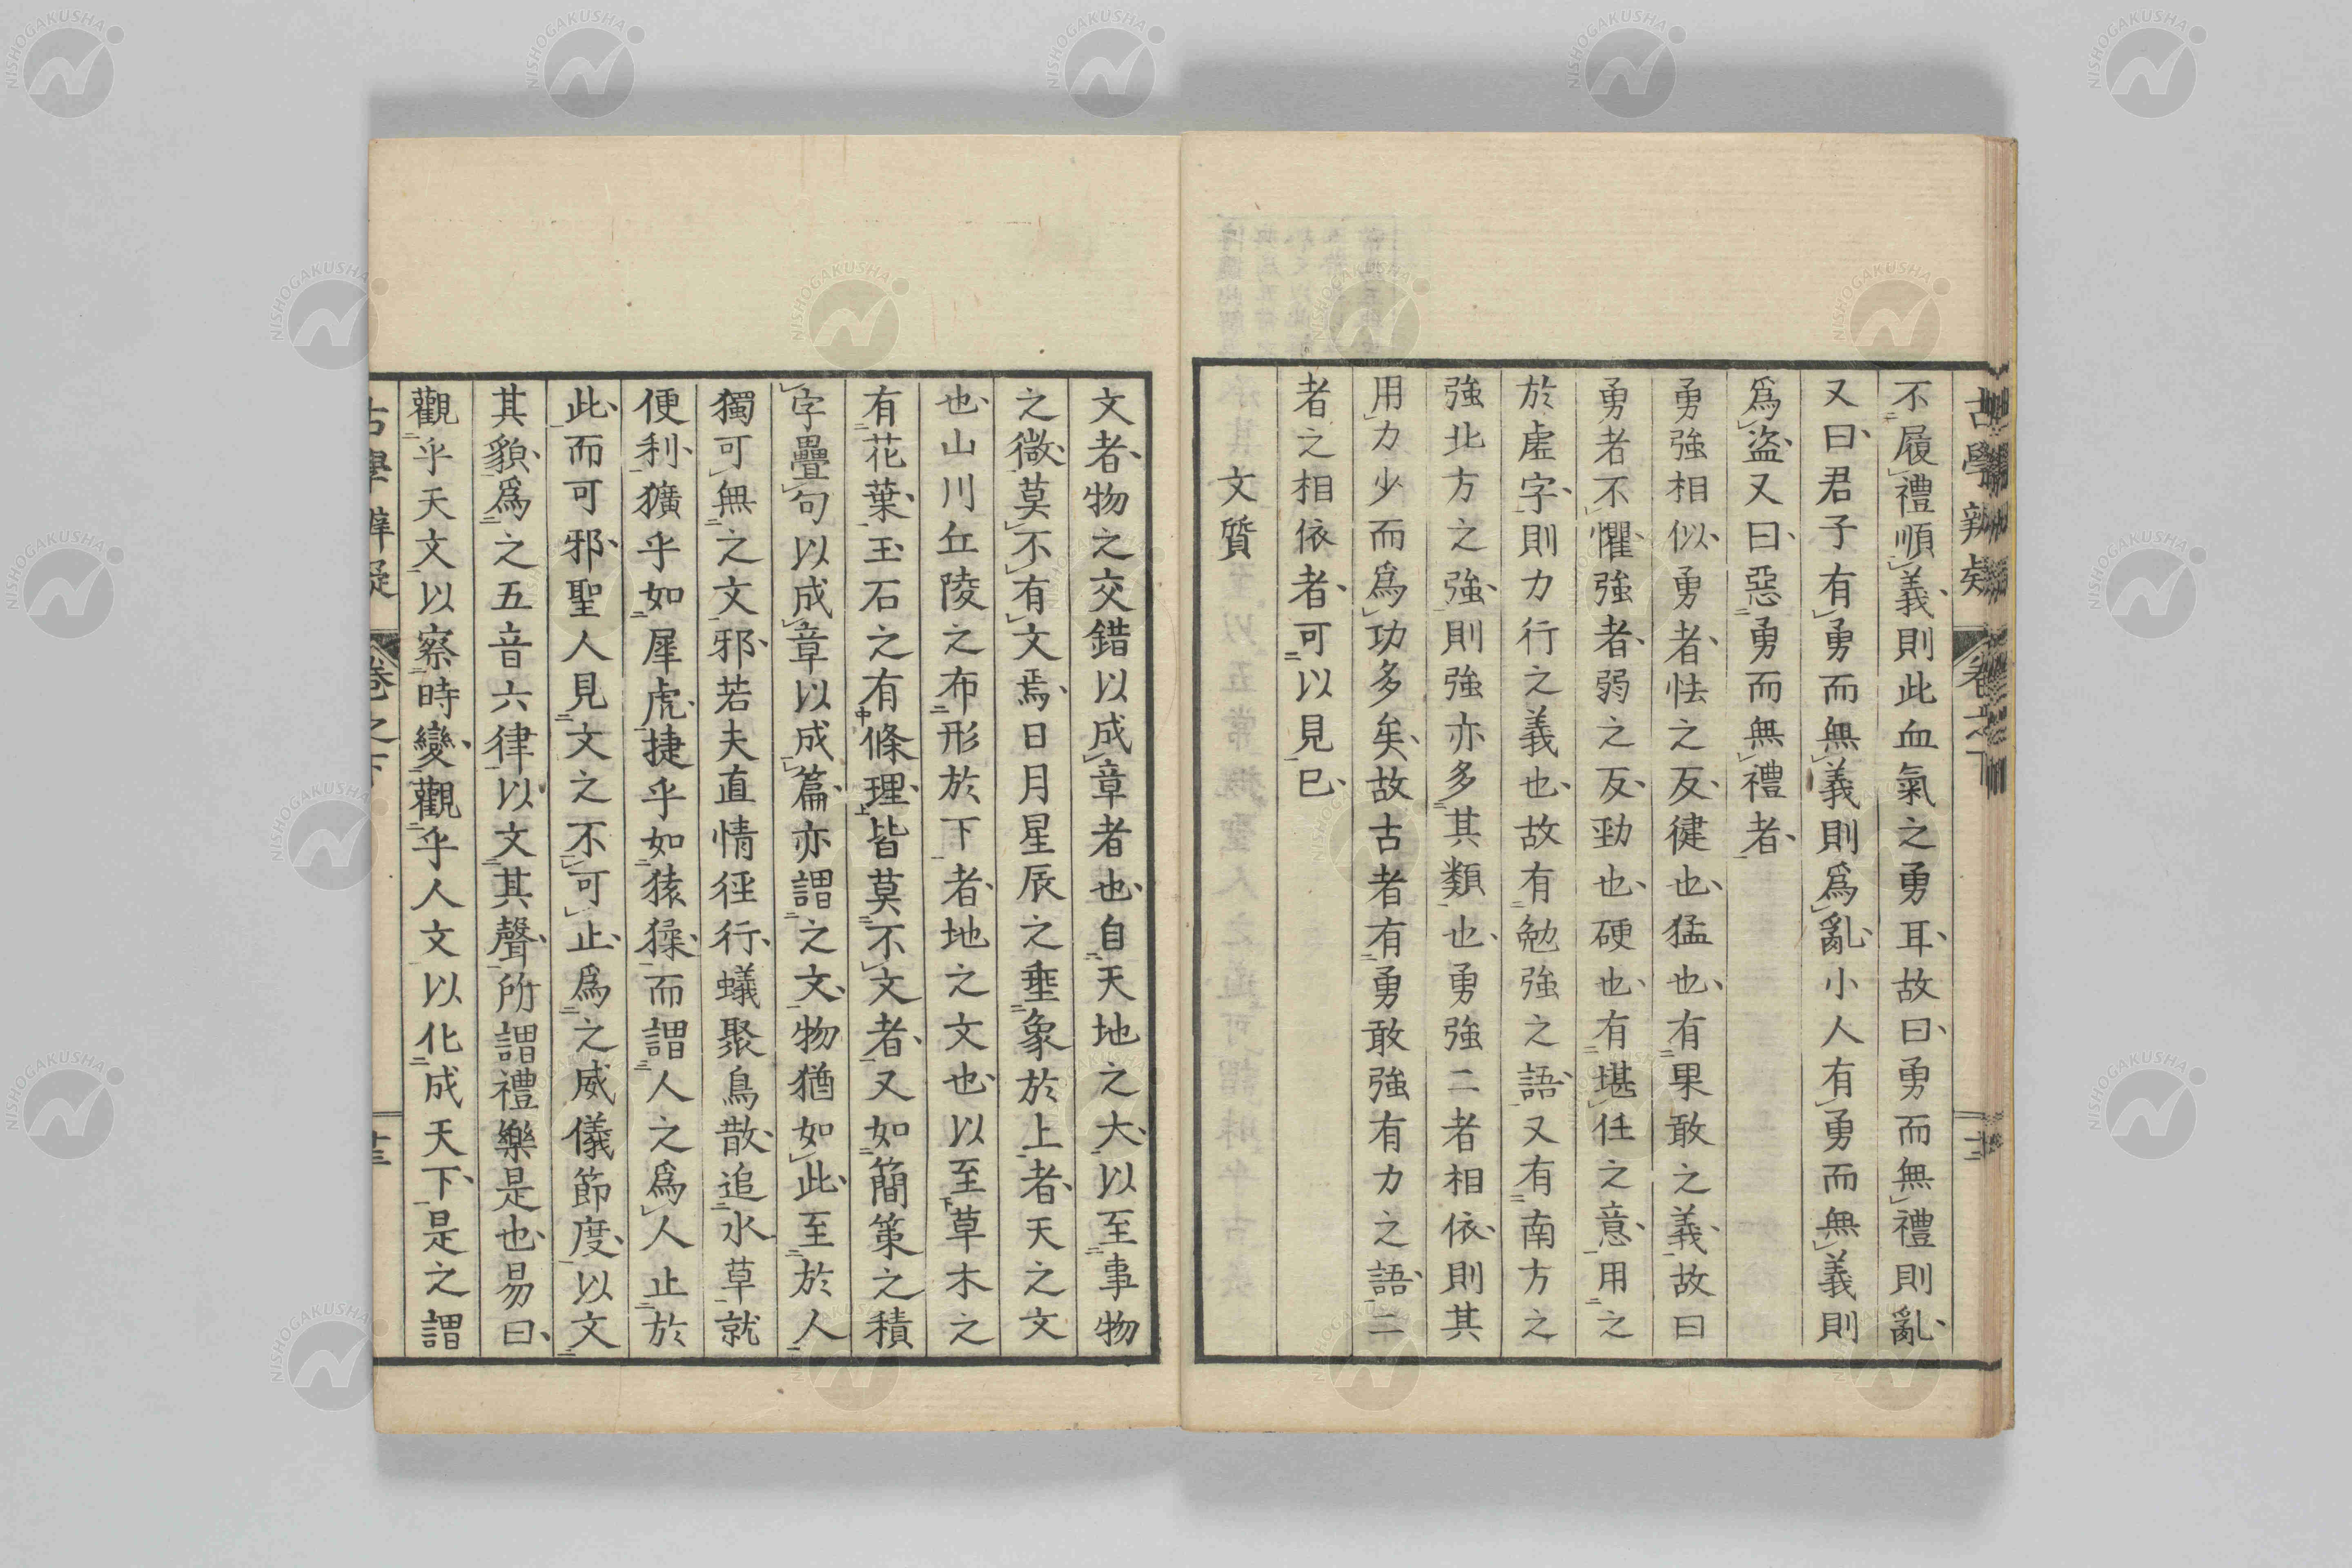 不履禮順義則此血氣之勇耳故曰勇而無禮則亂
又曰君子有勇而無義則爲亂小人有勇而無義則
爲盗又曰惡勇而無禮者
勇強相似勇者怯之反健也猛也有果敢之義故曰
勇者不懼強者弱之反勁也硬也有堪任之意用之
於虛字則力行之義也故有勉強之語又有南方之
強北方之強則強亦多其類也勇強二者相依則其
用力少而爲功多矣故古者有勇敢強有力之語二
者之相依者可以見已
文質
文者物之交錯以成章者也自天地之大以至事物
之微莫不有文焉日月星辰之垂象於上者天之文
也山川丘陵之布形於下者地之文也以至草木之
有花葉玉石之有條理皆莫不文者又如簡策之積
字疊句以成章以成篇亦謂之文物猶如此至於人
獨可無之文邪若夫直情徑行蟻聚鳥散追水草就
便利獷乎如犀虎捷乎如猿猱而謂人之爲人止於
此而可邪聖人見文之不可止爲之威儀節度以文
其貌爲之五音六律以文其聲所謂禮樂是也易曰
觀乎天文以察時變觀乎人文以化成天下是之謂
古學辨疑
卷之下
NISHOGAKUSHA